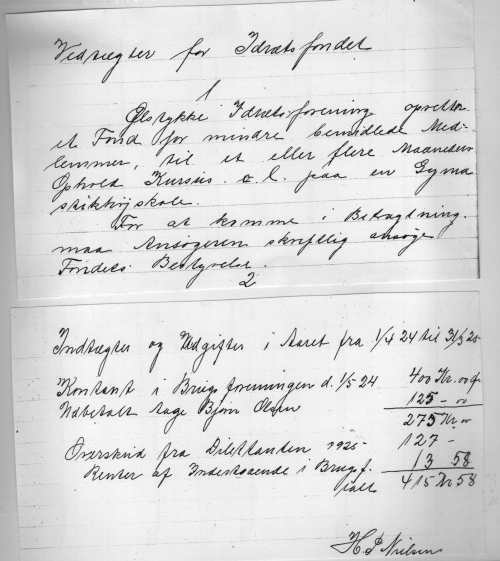 Vedtægter for Idrætsfondet
1
Ølstykke Idrætsforening opretter
et Fond for mindre bemidlede Med-
lemmer, til et eller flere Maaneders
Ophold Kursus o. l. paa en Gymna
stikhøjskole.
For at komme i Betragtning.
maa Ansøgeren skriftlig ansøge
Fondets Bestyrelse.
2
Indtægter og Udgifter i Aaret fra 1/4 24 til 31/3 25
Kontant i Brugsforeningen d. 1/5-24 400 Kr. 00 Ø
Udbetalt Aage Bjørn Olsen 125 - 00
275 Kr 00
Overskud fra Dilettanten 1925 127 -
Renter af Indestaaende i Brugsf. 13 58
ialt 415 Kr 58
H. P. Nielsen